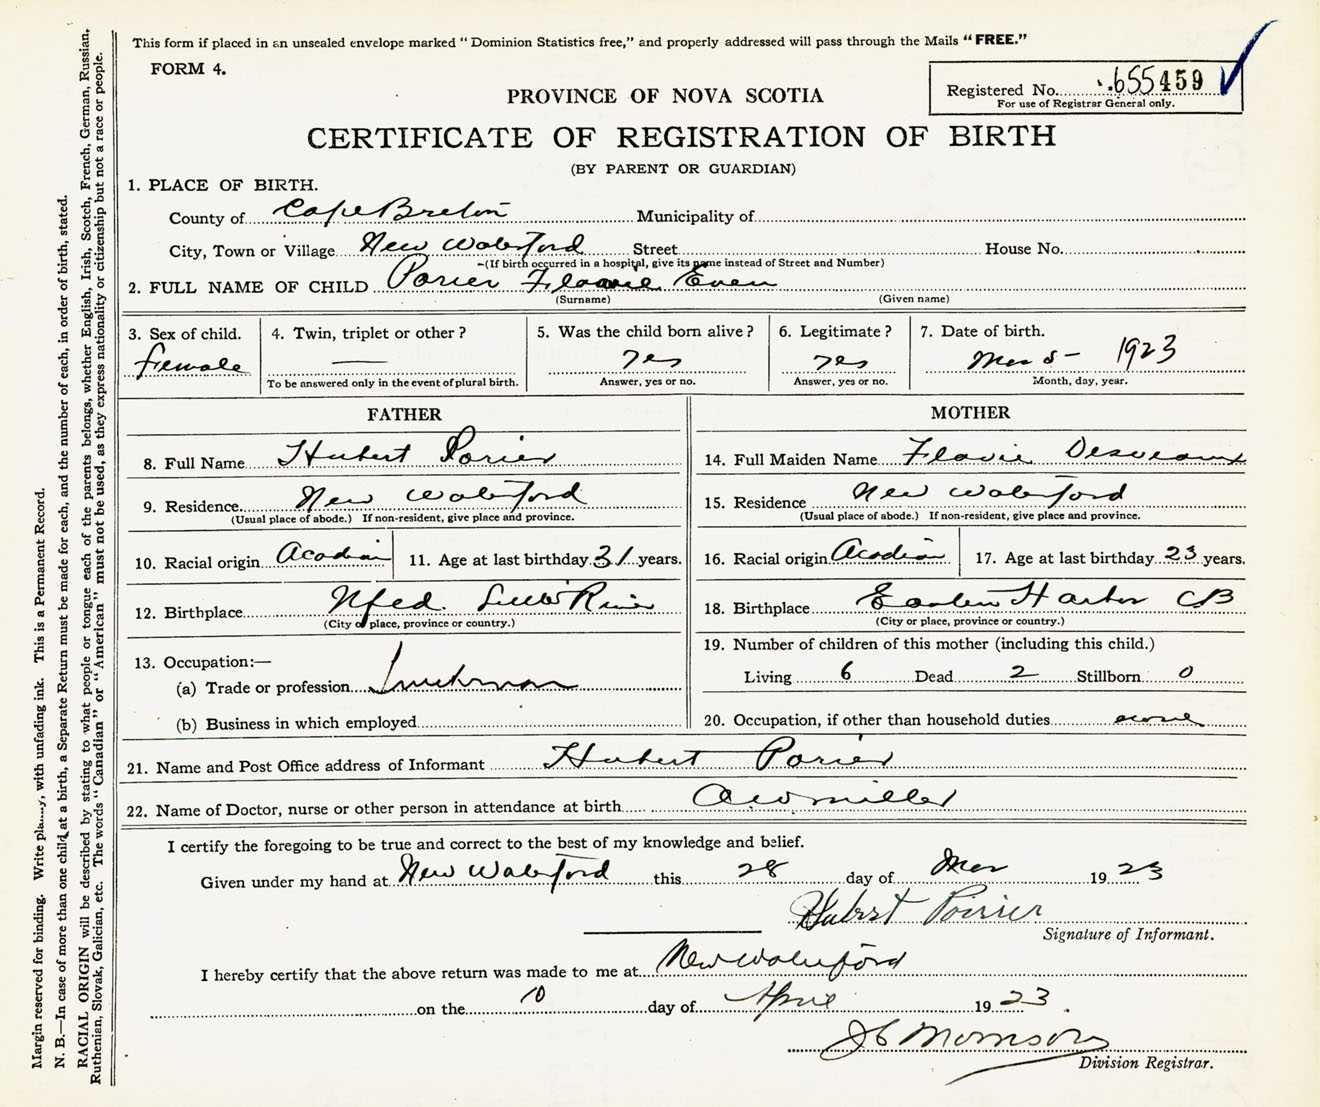 This form if placed in an unsealed envelope marked "Dominion Statistics free," and properly addressed will pass through the Mails "FREE."
FORM 4.
Registered No. 655459
For use of Registrar General only.
PROVINCE OF NOVA SCOTIA
CERTIFICATE OF REGISTRATION OF BIRTH
(BY PARENT OR GUARDIAN)
1. PLACE OF BIRTH.
County of Cape Breton Municipality of
City, Town or Village New Waterford Street House No.
(If birth occurred in a hospital, give its name instead of Street and Number)
2. FULL NAME OF CHILD Porier
(Surname) (Given name)
3. Sex of child. 4. Twin, triplet or other? 5. Was the child born alive? 6. Legitimate? 7. Date of birth.
female — yes yes Mar 5 - 1923
To be answered only in the event of plural birth. Answer, yes or no. Answer, yes or no. Month, day, year.
FATHER MOTHER
8. Full Name Hubert Porier
14. Full Maiden Name Flavie Desveaux
9. Residence New Waterford
15. Residence New Waterford
(Usual place of abode.) If non-resident, give place and province.
(Usual place of abode.) If non-resident, give place and province.
10. Racial origin Acadian 11. Age at last birthday 31 years.
16. Racial origin Acadian 17. Age at last birthday 23 years.
12. Birthplace Nfed. River
(City or place, province or country.)
18. Birthplace Eastern Harbor CB
(City or place, province or country.)
13. Occupation:—
(a) Trade or profession
(b) Business in which employed
19. Number of children of this mother (including this child.)
Living 6 Dead 2 Stillborn 0
20. Occupation, if other than household duties none
21. Name and Post Office address of Informant Hubert Porier
22. Name of Doctor, nurse or other person in attendance at birth miller
I certify the foregoing to be true and correct to the best of my knowledge and belief.
Given under my hand at New Waterford this 28 day of Mar 1923
Hubert Poirier
Signature of Informant.
I hereby certify that the above return was made to me at New Waterford
on the 10 day of April 1923
Morrison
Division Registrar.
Margin reserved for binding. Write with unfading ink. This is a Permanent Record.
N. B.—In case of more than one child at a birth, a Separate Return must be made for each, and the number of each, in order of birth, stated.
RACIAL ORIGIN will be described by stating to what people or tongue each of the parents belongs, whether English, Irish, Scotch, French, German, Russian,
Ruthenian, Slovak, Galician, etc. The words "Canadian" or "American" must not be used, as they express nationality or citizenship but not a race or people.